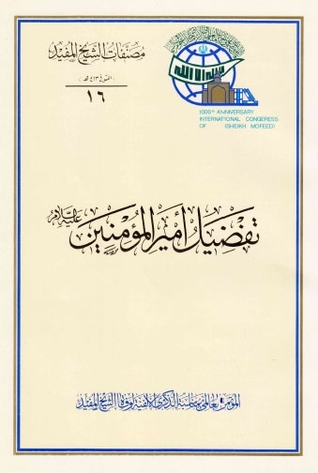 مصنفات الشيخ المفيد
(المتوفى ٤١٣ هـ)
١٦
1000th ANNIVERSARY
INTERNATIONAL CONGRESS
OF (SHEIKH MOFEED)
تفضيل أمير المؤمنين عليه السلام
المؤتمر العالمي بمناسبة الذكرى الألفية لوفاة الشيخ المفيد